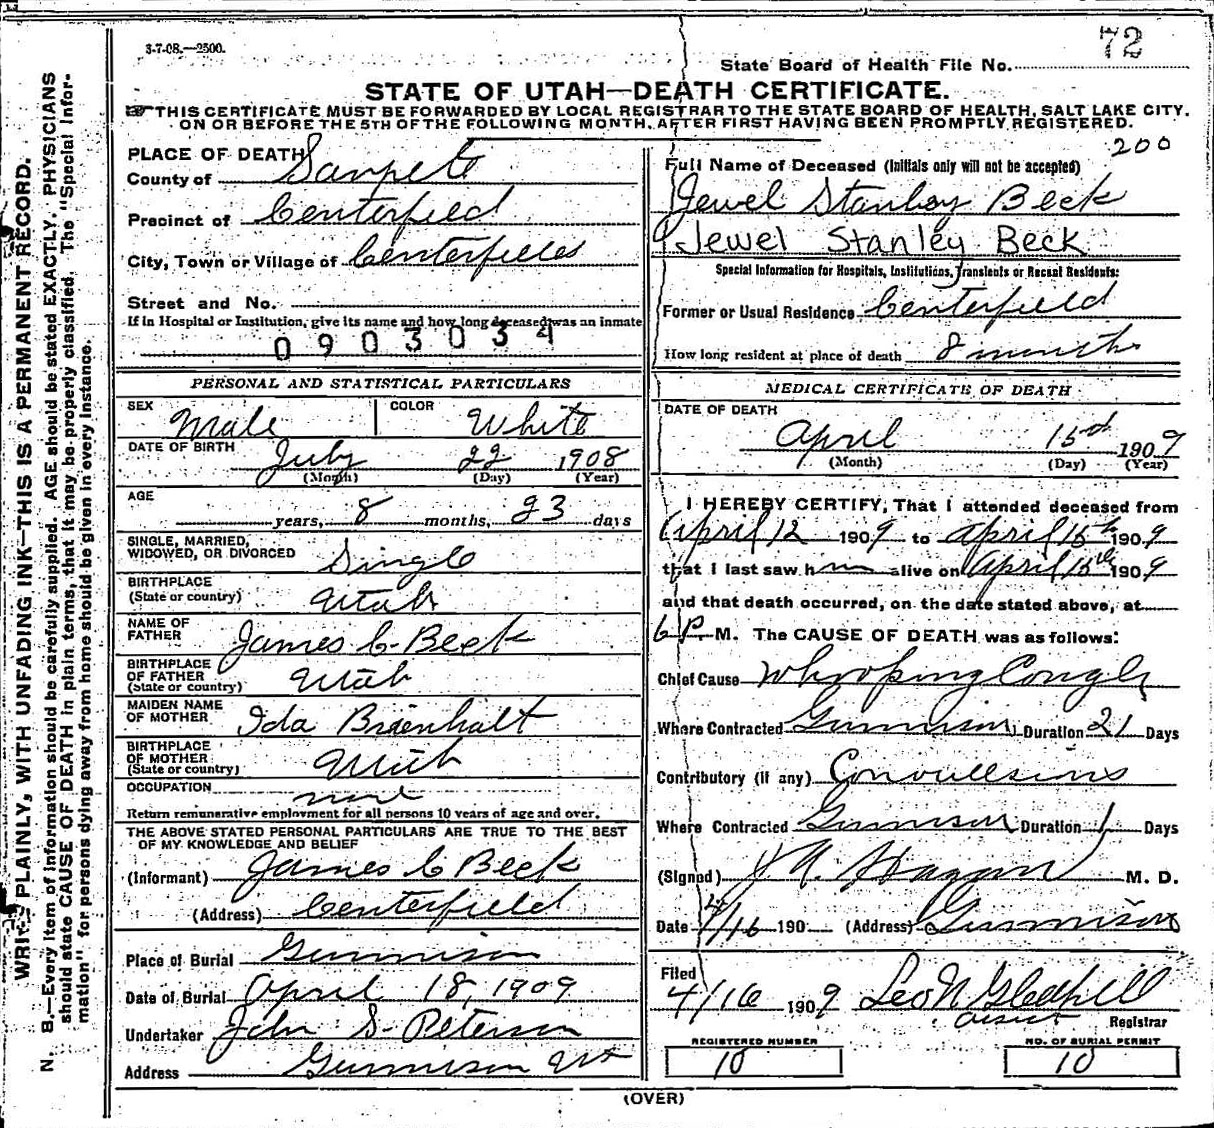 WRITE PLAINLY, WITH UNFADING INK—THIS IS A PERMANENT RECORD.
N. B.—Every item of information should be carefully supplied. AGE should be stated EXACTLY. PHYSICIANS
should state CAUSE OF DEATH in plain terms, that it may be properly classified. The "Special Infor-
mation" for persons dying away from home should be given in every instance.
3-7-08.—2500.
72
State Board of Health File No.
STATE OF UTAH—DEATH CERTIFICATE.
THIS CERTIFICATE MUST BE FORWARDED BY LOCAL REGISTRAR TO THE STATE BOARD OF HEALTH, SALT LAKE CITY,
ON OR BEFORE THE 5TH OF THE FOLLOWING MONTH, AFTER FIRST HAVING BEEN PROMPTLY REGISTERED.
PLACE OF DEATH
County of Sanpete
Precinct of Centerfield
City, Town or Village of Centerfield
Street and No.
If in Hospital or Institution, give its name and how long deceased was an inmate
0903034
PERSONAL AND STATISTICAL PARTICULARS
SEX Male COLOR White
DATE OF BIRTH July 22 1908
(Month) (Day) (Year)
AGE years, 8 months, 23 days
SINGLE, MARRIED,
WIDOWED, OR DIVORCED Single
BIRTHPLACE
(State or country) Utah
NAME OF
FATHER James C. Beck
BIRTHPLACE
OF FATHER
(State or country) Utah
MAIDEN NAME
OF MOTHER Ida
BIRTHPLACE
OF MOTHER
(State or country) Utah
OCCUPATION none
Return remunerative employment for all persons 10 years of age and over.
THE ABOVE STATED PERSONAL PARTICULARS ARE TRUE TO THE BEST
OF MY KNOWLEDGE AND BELIEF
(Informant) James C Beck
(Address) Centerfield
Place of Burial Gunnison
Date of Burial April 18, 1909
Undertaker John S. Peterson
Address Gunnison Ut
200
Full Name of Deceased (Initials only will not be accepted)
Jewel Stanley Beck
Jewel Stanley Beck
Special Information for Hospitals, Institutions, Transients or Recent Residents:
Former or Usual Residence Centerfield
How long resident at place of death 8 months
MEDICAL CERTIFICATE OF DEATH
DATE OF DEATH
April 15th 1909
(Month) (Day) (Year)
I HEREBY CERTIFY, That I attended deceased from
April 12 1909 to April 15th 1909
that I last saw him alive on April 15th 1909
and that death occurred, on the date stated above, at
6 P M. The CAUSE OF DEATH was as follows:
Chief Cause Whooping Cough
Where Contracted Gunnison Duration 21 Days
Contributory (if any) Convullsions
Where Contracted Gunnison Duration 1 Days
(Signed) M. D.
Date 4/16 190 (Address) Gunnison
Filed
4/16 1909 Leo N Gledhill
Registrar
REGISTERED NUMBER
10
NO. OF BURIAL PERMIT
10
(OVER)